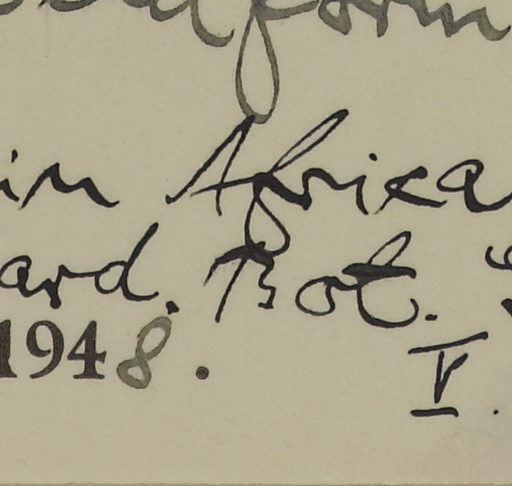 in Africa
ard. Bot.
1948.
V.